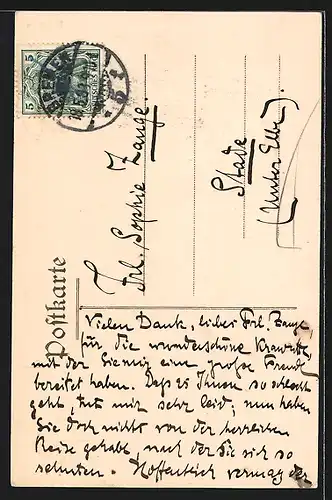 Postkarte
5 5
BREMEN
Frl. Sophie Zange.
Stade
(Unter Elbe).
Vielen Dank, liebes Frl. Zange,
für die wunderschöne Krawatte,
mit der Sie mir eine große Freude
bereitet haben. Daß es Ihnen so schlecht
geht, tut mir sehr leid; nun haben
Sie doch nichts von der herrlichen
Reise gehabt, nach der Sie sich so
sehnten. Hoffentlich vermag der